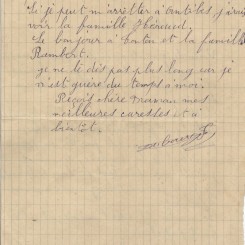 Si je peut m'arretter à Antibes j'irais
voir la famille
le bonjour à tonton et la famille
Rambert.
je ne te dis pas plus long car je
n'est guère du temps à moi.
Reçoit chère Maman mes
meilleures caresses et à
bientôt.